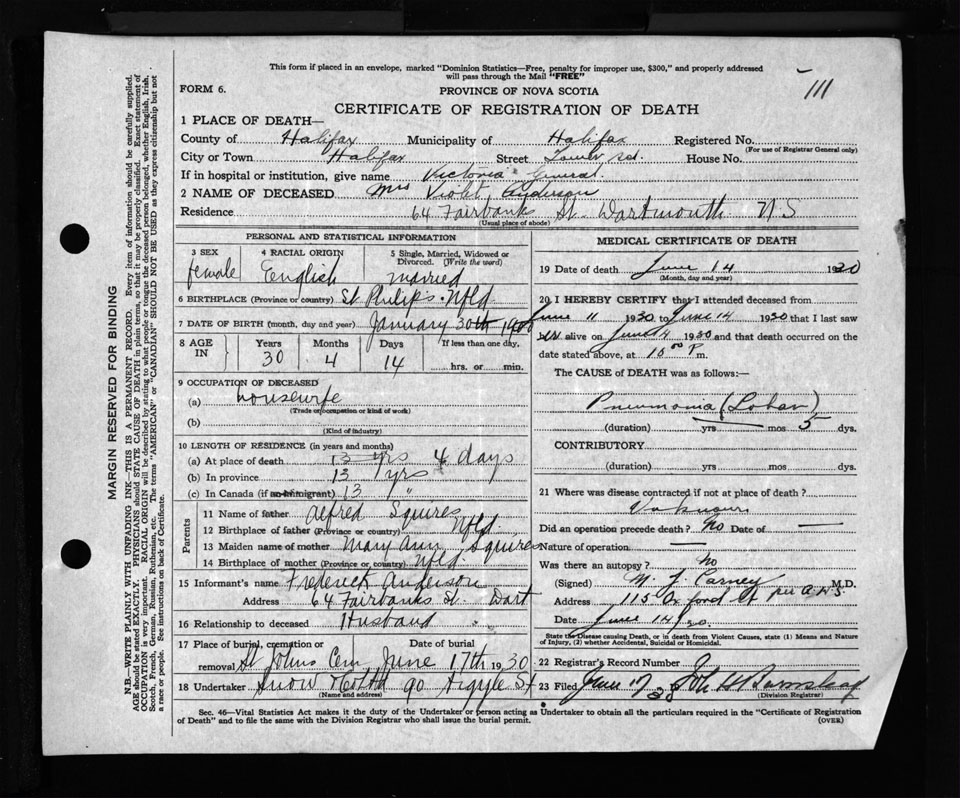 This form if placed in an envelope, marked "Dominion Statistics—Free, penalty for improper use, $300," and properly addressed
will pass through the Mail "FREE"
111
FORM 6.
PROVINCE OF NOVA SCOTIA
CERTIFICATE OF REGISTRATION OF DEATH
1 PLACE OF DEATH—
County of Halifax Municipality of Halifax Registered No.
(For use of Registrar General only)
City or Town Halifax Street Tower Rd. House No.
If in hospital or institution, give name Victoria General.
2 NAME OF DECEASED Mrs Violet Anderson
Residence 64 Fairbanks St. Dartmouth N S
(Usual place of abode)
PERSONAL AND STATISTICAL INFORMATION
3 SEX female
4 RACIAL ORIGIN English
5 Single, Married, Widowed or Divorced. (Write the word) married
6 BIRTHPLACE (Province or country) St Philip's. Nfld.
7 DATE OF BIRTH (month, day and year) January 30th 1900
8 AGE IN Years 30 Months 4 Days 14 If less than one day, hrs. or min.
9 OCCUPATION OF DECEASED
(a) housewife
(Trade or occupation or kind of work)
(b)
(Kind of industry)
10 LENGTH OF RESIDENCE (in years and months)
(a) At place of death 13 yrs 4 days
(b) In province 13 yrs
(c) In Canada (if an immigrant) 13 "
Parents
11 Name of father Alfred Squires
12 Birthplace of father (Province or country) Nfld.
13 Maiden name of mother Mary Ann Squires
14 Birthplace of mother (Province or country) Nfld.
15 Informant's name Frederick Anderson
Address 64 Fairbanks St. Dart
16 Relationship to deceased Husband
17 Place of burial, cremation or removal St Johns Cem Date of burial June 17th 1930
18 Undertaker Snow 90 Argyle St
(Name and address)
MEDICAL CERTIFICATE OF DEATH
19 Date of death June 14 1930
(Month, day and year)
20 I HEREBY CERTIFY that I attended deceased from
June 11 1930 to June 14 1930 that I last saw
her alive on June 14 1930 and that death occurred on the
date stated above, at P m.
The CAUSE of DEATH was as follows:—
Pneumonia (Lobar)
(duration) yrs mos 5 dys.
CONTRIBUTORY
(duration) yrs mos dys.
21 Where was disease contracted if not at place of death?
Did an operation precede death? No Date of —
Nature of operation —
Was there an autopsy? No
(Signed) M. J. Carney M.D.
per A.H.S.
Address 115 Oxford St
Date June 14/30.
State the Disease causing Death, or in death from Violent Causes, state (1) Means and Nature
of Injury, (2) whether Accidental, Suicidal or Homicidal.
22 Registrar's Record Number
23 Filed June 17 30
(Division Registrar)
Sec. 46—Vital Statistics Act makes it the duty of the Undertaker or person acting as Undertaker to obtain all the particulars required in the "Certificate of Registration
of Death" and to file the same with the Division Registrar who shall issue the burial permit.
(OVER)
MARGIN RESERVED FOR BINDING
N.B.—WRITE PLAINLY WITH UNFADING INK—THIS IS A PERMANENT RECORD. Every item of information should be carefully supplied.
AGE should be stated EXACTLY. PHYSICIANS should STATE CAUSE OF DEATH in plain terms, so that it may be properly classified. Exact statement of
OCCUPATION is very important. RACIAL ORIGIN will be described by stating to what people or tongue the deceased person belonged, whether English, Irish,
Scotch, French, German, Russian, Ruthenian, etc. The terms "AMERICAN" or "CANADIAN" SHOULD NOT BE USED as they express citizenship but not
a race or people. See instructions on back of Certificate.